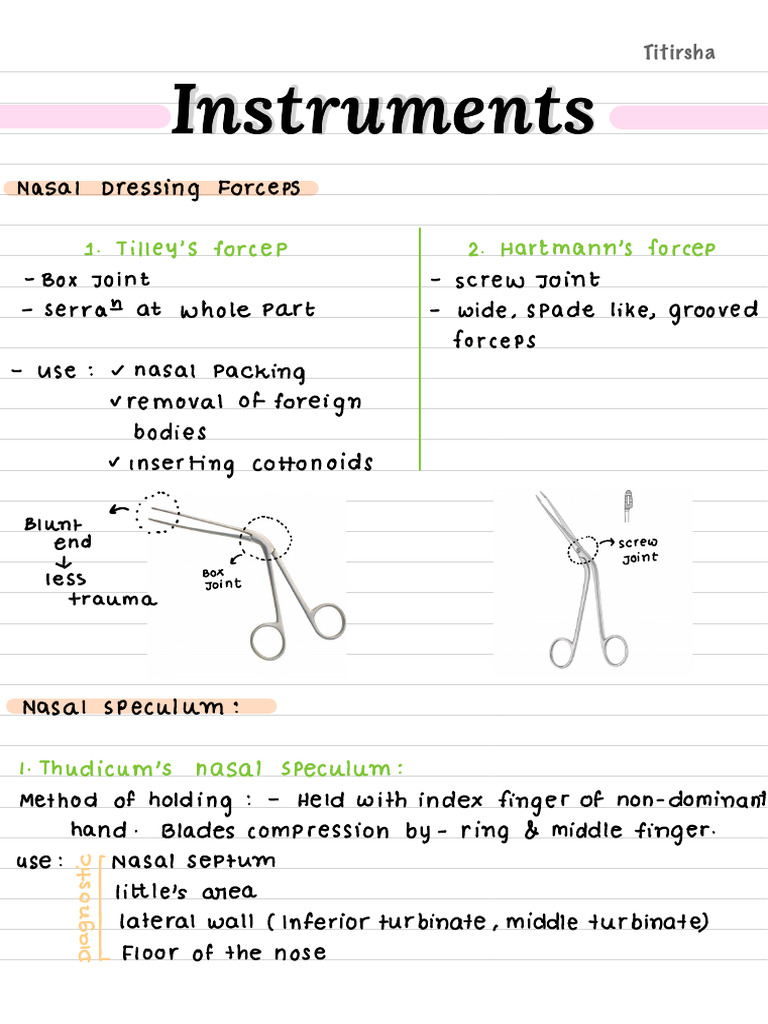 Titirsha
Instruments
Nasal Dressing Forceps
1. Tilley's forcep
- Box joint
- serraⁿ at whole part
- use : ✓ nasal packing
✓ removal of foreign
bodies
✓ inserting cottonoids
2. Hartmann's forcep
- screw joint
- wide, spade like, grooved
forceps
Blunt
end
↓
less
trauma
Box
joint
screw
joint
Nasal speculum :
1. Thudicum's nasal speculum :
Method of holding : - Held with index finger of non-dominant
hand. Blades compression by - ring & middle finger.
use : Nasal septum
Diagnostic
little's area
lateral wall (Inferior turbinate, middle turbinate)
Floor of the nose